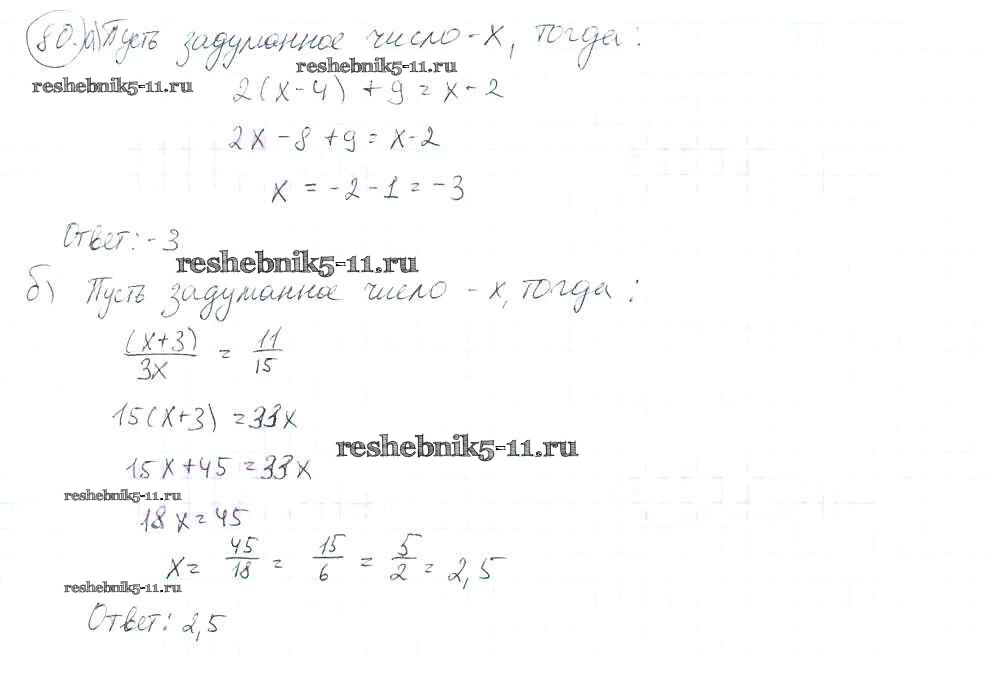 80. а) Пусть задуманное число - x, тогда:
reshebnik5-11.ru
reshebnik5-11.ru
2(x-4) + 9 = x - 2
2x - 8 + 9 = x - 2
x = -2 - 1 = -3
Ответ: -3
reshebnik5-11.ru
б) Пусть задуманное число - x, тогда:
(x+3)/3x = 11/15
15(x+3) = 33x
reshebnik5-11.ru
15x + 45 = 33x
reshebnik5-11.ru
18x = 45
x = 45/18 = 15/6 = 5/2 = 2,5
reshebnik5-11.ru
Ответ: 2,5